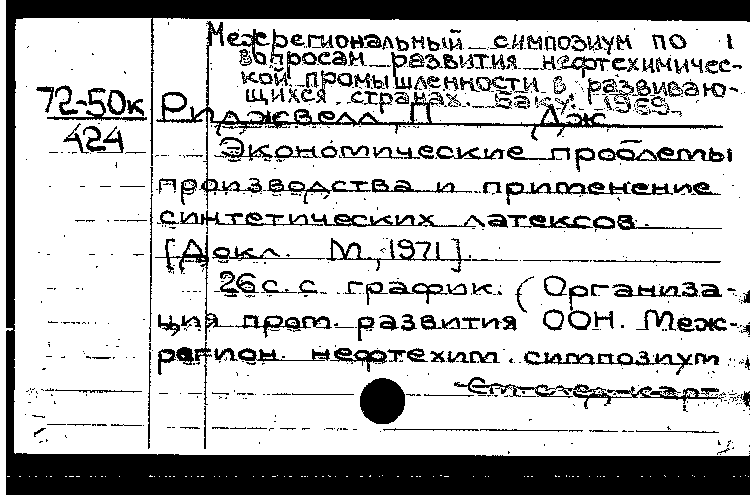 Межрегиональный симпозиум по 1
вопросам развития нефтехимичес-
кой промышленности в развиваю-
щихся странах. Баку. 1969.
72-50к Риджвелл, П Дж.
424
Экономические проблемы
производства и применение
синтетических латексов.
[Докл. М., 1971].
26с. с график. (Организа-
ция пром. развития ООН. Меж-
регион. нефтехим. симпозиум
См. след. карт